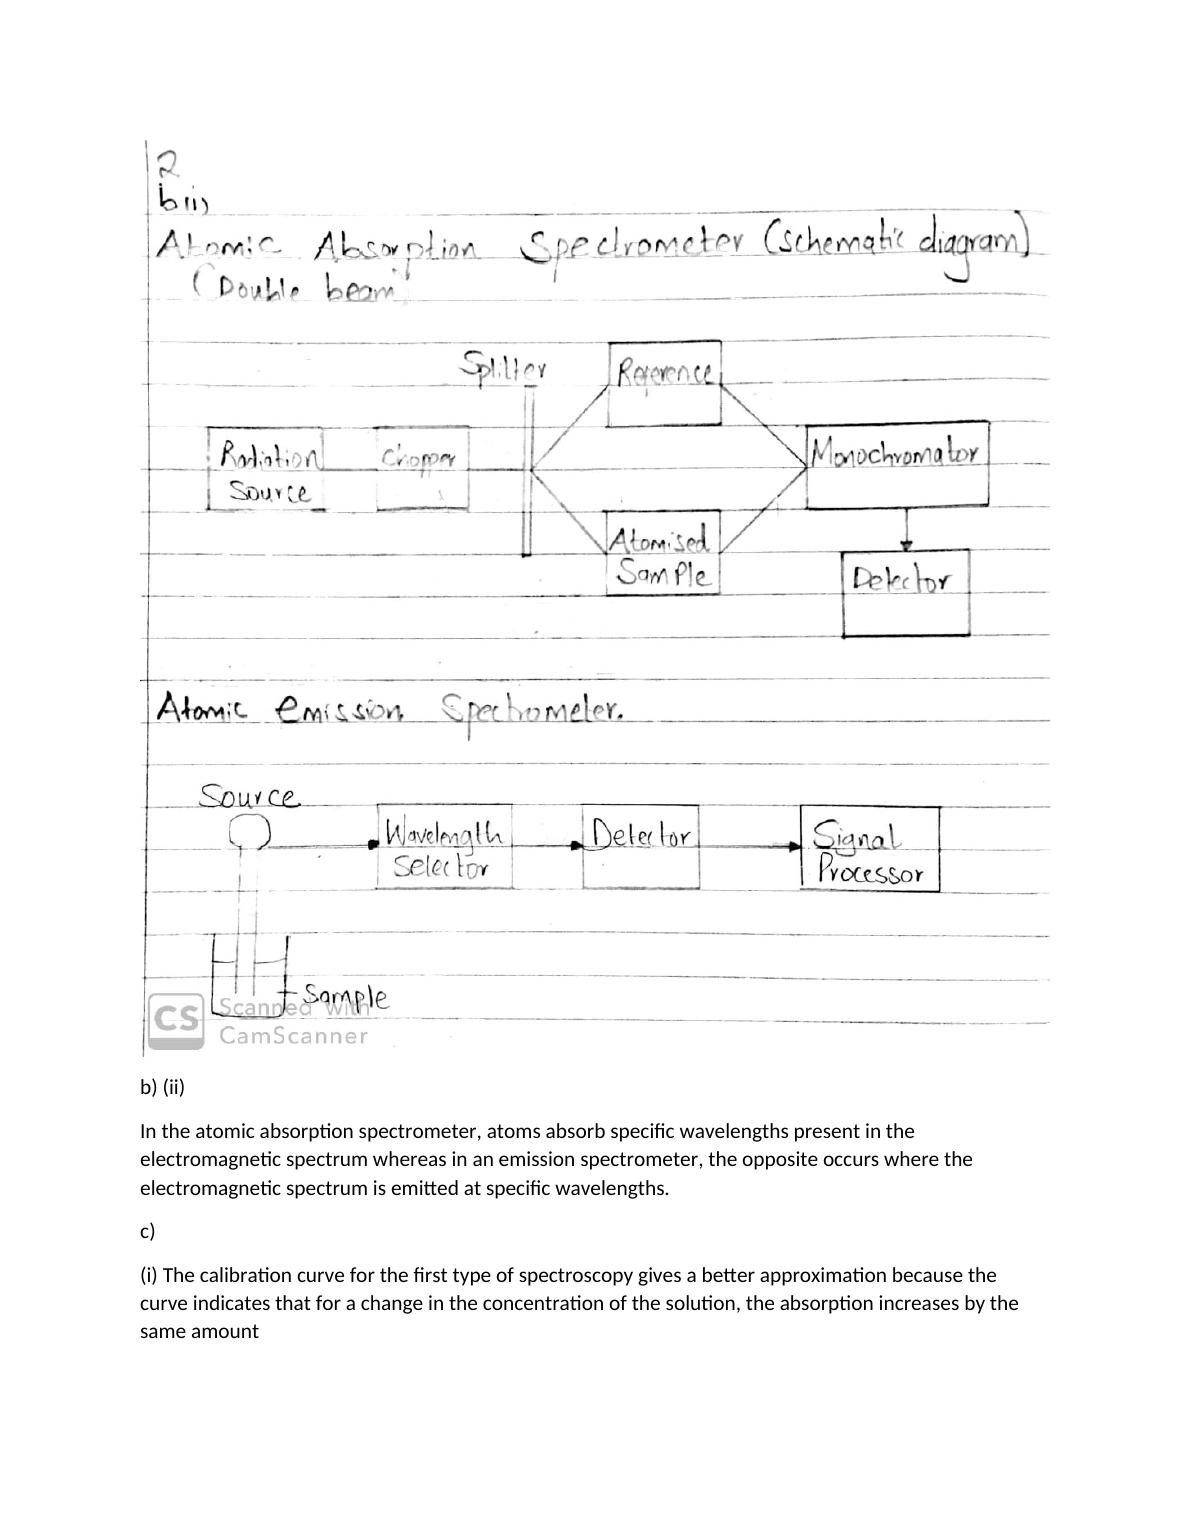 2
b(i)
Atomic Absorption Spectrometer (schematic diagram)
(Double beam)
Splitter
Reference
Radiation
Source
Chopper
Monochromator
Atomised
Sample
Detector
Atomic emission Spectrometer.
Source
Wavelength
Selector
Detector
Signal
Processor
Sample
CS
Scanned with
CamScanner
b) (ii)
In the atomic absorption spectrometer, atoms absorb specific wavelengths present in the
electromagnetic spectrum whereas in an emission spectrometer, the opposite occurs where the
electromagnetic spectrum is emitted at specific wavelengths.
c)
(i) The calibration curve for the first type of spectroscopy gives a better approximation because the
curve indicates that for a change in the concentration of the solution, the absorption increases by the
same amount